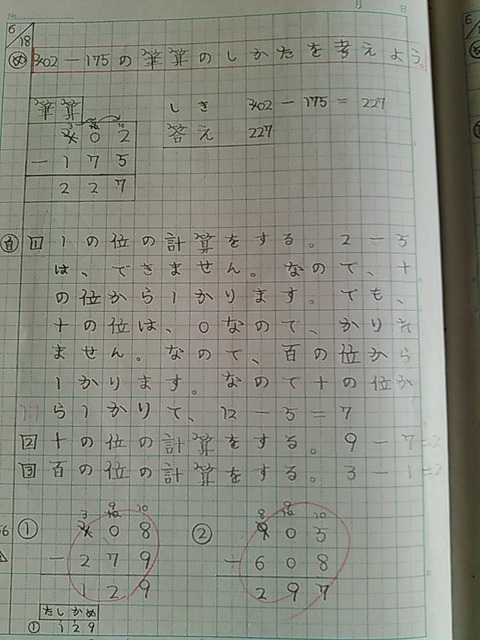 No.
月 日
6/18
め 302－175の筆算のしかたを考えよう。
筆算 しき 302－175＝227
3 9 10 10
402 答え 227
－175
227
自 1 1の位の計算をする。2－5
は、できません。なので、十
の位から1かります。でも、
十の位は、0なので、かりれ
ません。なので、百の位から
1かります。なので十の位か
ら1かりて、12－5＝7
2 十の位の計算をする。9－7＝2
3 百の位の計算をする。3－1＝2
① 3 9 10 10 ② 8 9 10 10
408 905
－279 －608
129 297
たしかめ
① 129